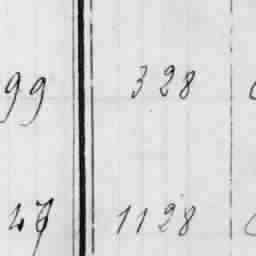 99 328
47 1128